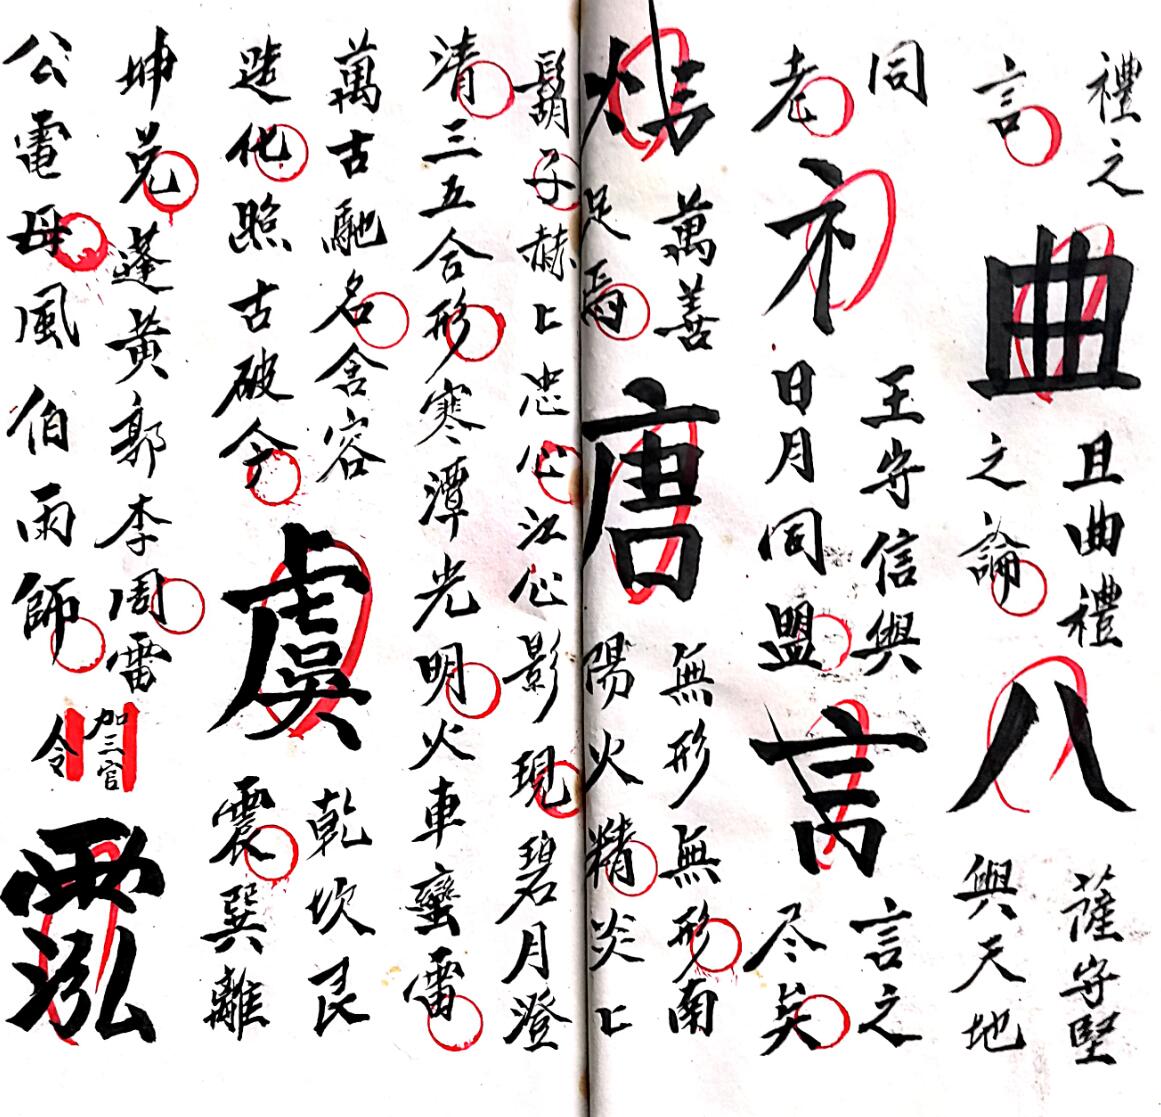 禮之
言
曲
且曲禮
之論
八
薩守堅
與天地
同
老
王守信與
日月同盟
言
言之
尽矣
萬善
足焉
唐
無形無形南
陽火精炎匕
鬍子赫匕忠心江心影現碧月澄
清三五合形寒潭光明火車蠻雷
萬古馳名含容
造化照古破今
虞
乾坎艮
震巽離
坤兌蓬黃郭李周雷
公電母風伯雨師
加三官
令
霐